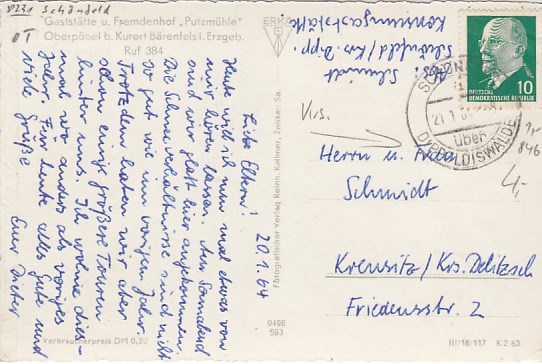 8231 Schönfeld
OT
"Gaststätte u. Fremdenhof „Putzmühle"
Oberpöbel b. Kurort Bärenfels i. Erzgeb.
Ruf 384
20.1.64
Liebe Eltern!
Heute will ich nun mal etwas von
mir hören lassen. Am Sonnabend
sind wir glatt hier angekommen.
Die Schneeverhältnisse sind nicht
so gut wie im vorigen Jahr.
Trotzdem haben wir aber
schon einige größere Touren
hinter uns. Ich wohne dies-
mal wo anders als voriges
Jahr. Für heute alles Gute und
viele Grüße
Euer Dieter
Verbraucherpreis DM 0,20
ERKA
Fotografischer Verlag Reinh. Kallmer, Zwickau Sa.
9496
593
Abs.:
Schmidt
Schönfeld/Krs. Dipp.
Konsumgaststätte
DEUTSCHE
DEMOKRATISCHE REPUBLIK
10
über
DIPPOLDISWALDE
846
4,-
Virs.
Herrn u. Frau
Schmidt
Krensitz/Krs. Delitzsch
Friedensstr. 2
III/18/117 K 2 63